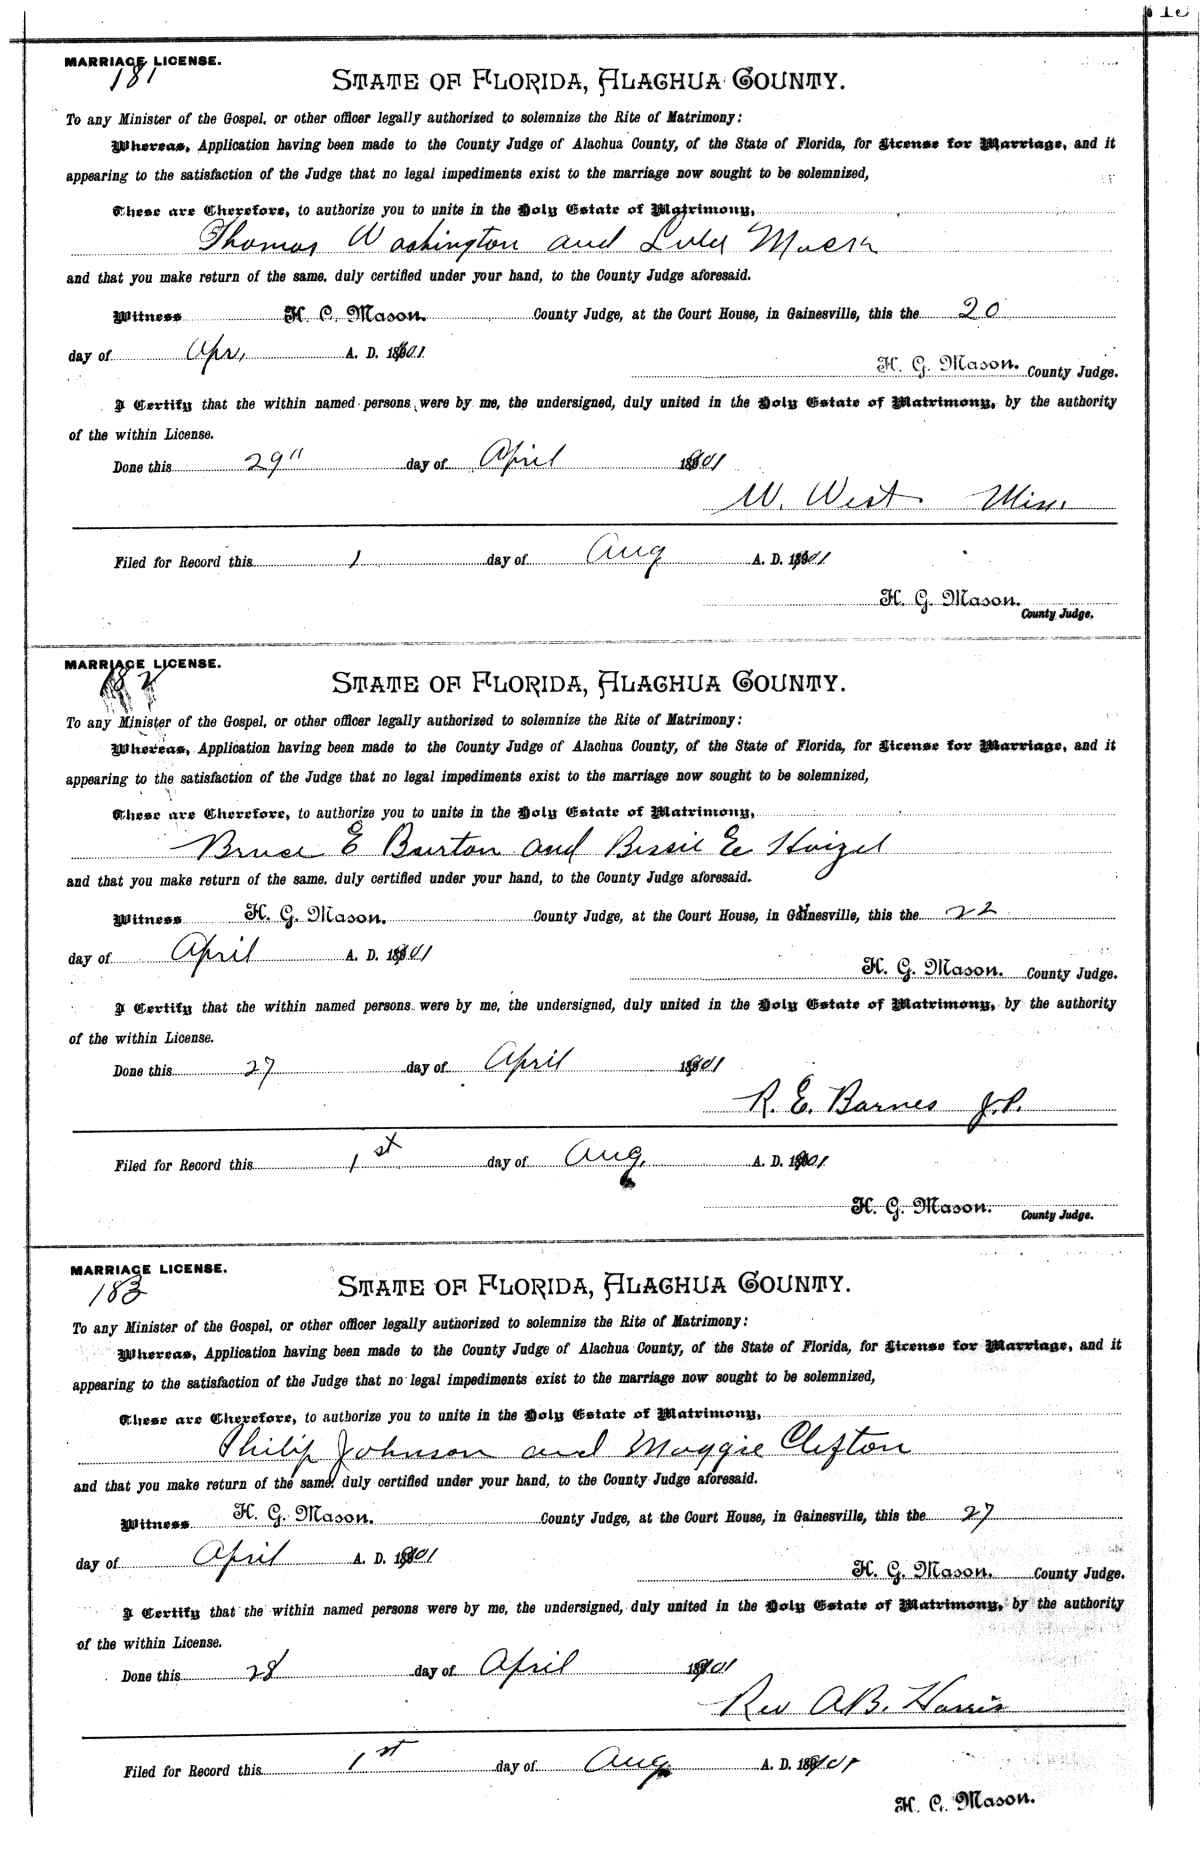 MARRIAGE LICENSE.
181
STATE OF FLORIDA, ALACHUA COUNTY.
To any Minister of the Gospel, or other officer legally authorized to solemnize the Rite of Matrimony:
Whereas, Application having been made to the County Judge of Alachua County, of the State of Florida, for License for Marriage, and it
appearing to the satisfaction of the Judge that no legal impediments exist to the marriage now sought to be solemnized,
These are Therefore, to authorize you to unite in the Holy Estate of Matrimony,
Thomas Washington and Lula
and that you make return of the same, duly certified under your hand, to the County Judge aforesaid.
Witness H. G. Mason. County Judge, at the Court House, in Gainesville, this the 20
day of Apr. A. D. 1901
H. G. Mason. County Judge.
I Certify that the within named persons were by me, the undersigned, duly united in the Holy Estate of Matrimony, by the authority
of the within License.
Done this 29" day of April 1901
W. West Min.
Filed for Record this 1 day of Aug A. D. 1901
H. G. Mason.
County Judge.
MARRIAGE LICENSE.
182
STATE OF FLORIDA, ALACHUA COUNTY.
To any Minister of the Gospel, or other officer legally authorized to solemnize the Rite of Matrimony:
Whereas, Application having been made to the County Judge of Alachua County, of the State of Florida, for License for Marriage, and it
appearing to the satisfaction of the Judge that no legal impediments exist to the marriage now sought to be solemnized,
These are Therefore, to authorize you to unite in the Holy Estate of Matrimony,
Bruce E Burton and Bessie E Hoizel
and that you make return of the same, duly certified under your hand, to the County Judge aforesaid.
Witness H. G. Mason. County Judge, at the Court House, in Gainesville, this the 22
day of April A. D. 1901
H. G. Mason. County Judge.
I Certify that the within named persons were by me, the undersigned, duly united in the Holy Estate of Matrimony, by the authority
of the within License.
Done this 27 day of April 1901
R. E. Barnes J.P.
Filed for Record this 1st day of Aug. A. D. 1901
H. G. Mason.
County Judge.
MARRIAGE LICENSE.
183
STATE OF FLORIDA, ALACHUA COUNTY.
To any Minister of the Gospel, or other officer legally authorized to solemnize the Rite of Matrimony:
Whereas, Application having been made to the County Judge of Alachua County, of the State of Florida, for License for Marriage, and it
appearing to the satisfaction of the Judge that no legal impediments exist to the marriage now sought to be solemnized,
These are Therefore, to authorize you to unite in the Holy Estate of Matrimony,
Philip Johnson and Maggie Clifton
and that you make return of the same, duly certified under your hand, to the County Judge aforesaid.
Witness H. G. Mason. County Judge, at the Court House, in Gainesville, this the 27
day of April A. D. 1901
H. G. Mason. County Judge.
I Certify that the within named persons were by me, the undersigned, duly united in the Holy Estate of Matrimony, by the authority
of the within License.
Done this 28 day of April 1901
Rev A.B. Harris
Filed for Record this 1st day of Aug A. D. 1901
H. G. Mason.